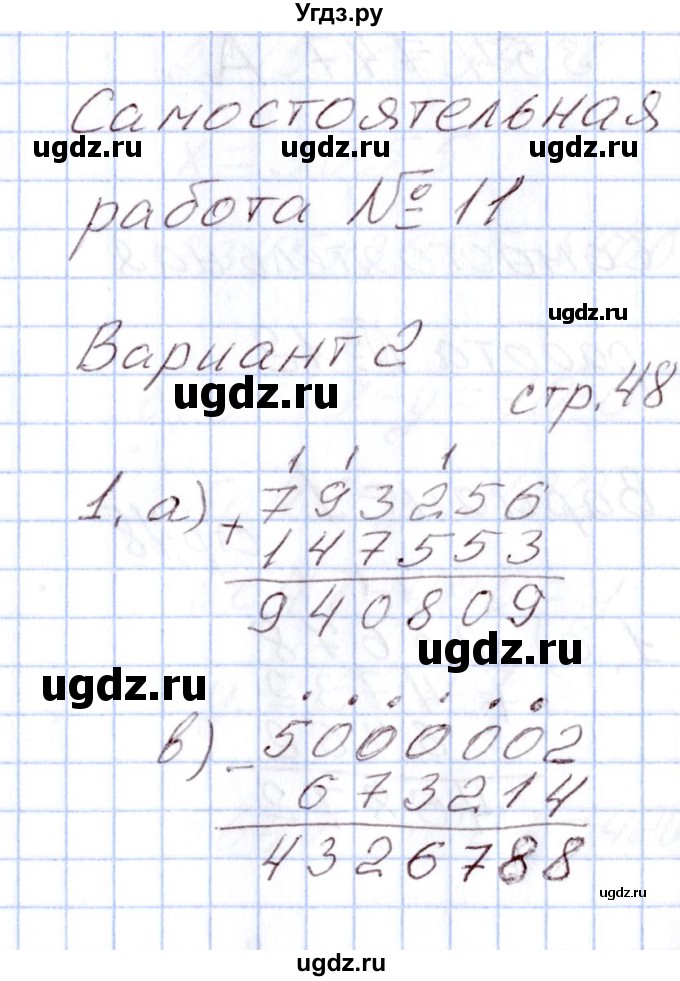 Угдз.ру
Самостоятельная
ugdz.ru ugdz.ru ugdz.ru
работа № 11
ugdz.ru
Вариант 2
ugdz.ru стр. 48
1 1 1
1. а) + 793256
147553
940809
ugdz.ru
ugdz.ru
в) - 5000002
673214
4326788
ugdz.ru
ugdz.ru